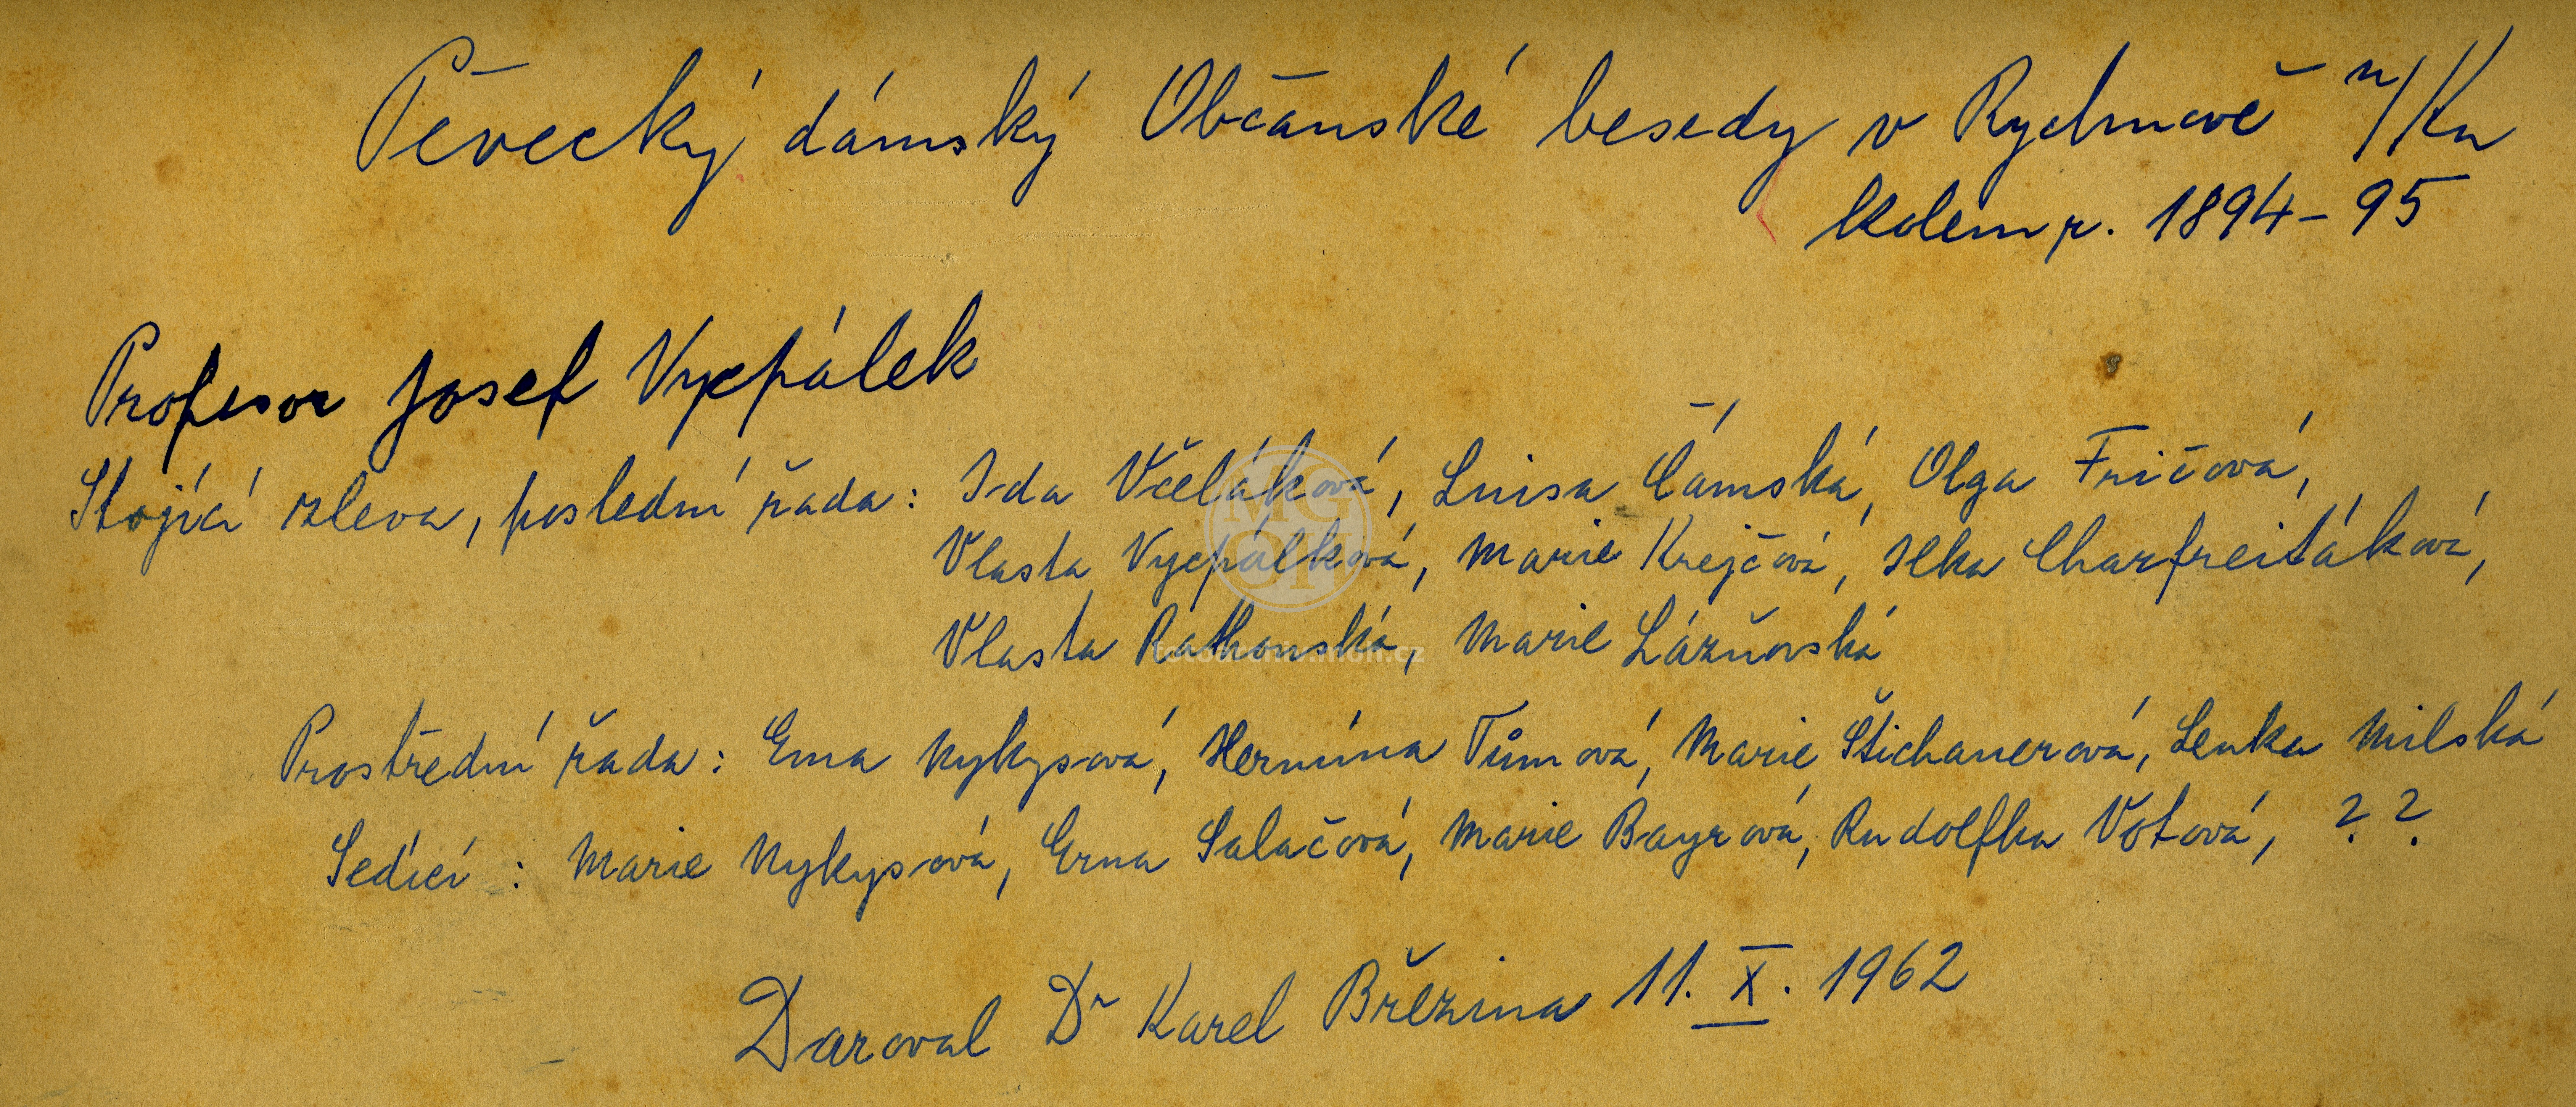 Pěvecký dámský Občanské besedy v Rychnově n/Kn
kolem r. 1894-95
Profesor Josef Vycpálek
Stojící zleva, poslední řada: Ida Včeláková, Luisa Čámská, Olga Fričová,
Vlasta Vycpálková, Marie Krejčová, Ilka Charfreitáková,
Vlasta Rathouská, Marie Lázňovská
Prostřední řada: Ema Nykysová, Hermína Tůmová, Marie Štichauerová, Lenka Milská
Sedící: Marie Nykysová, Erna Salačová, Marie Bayrová, Rudolfka Votová, ? ?
Daroval Dr Karel Březina 11. X. 1962
MG
OH